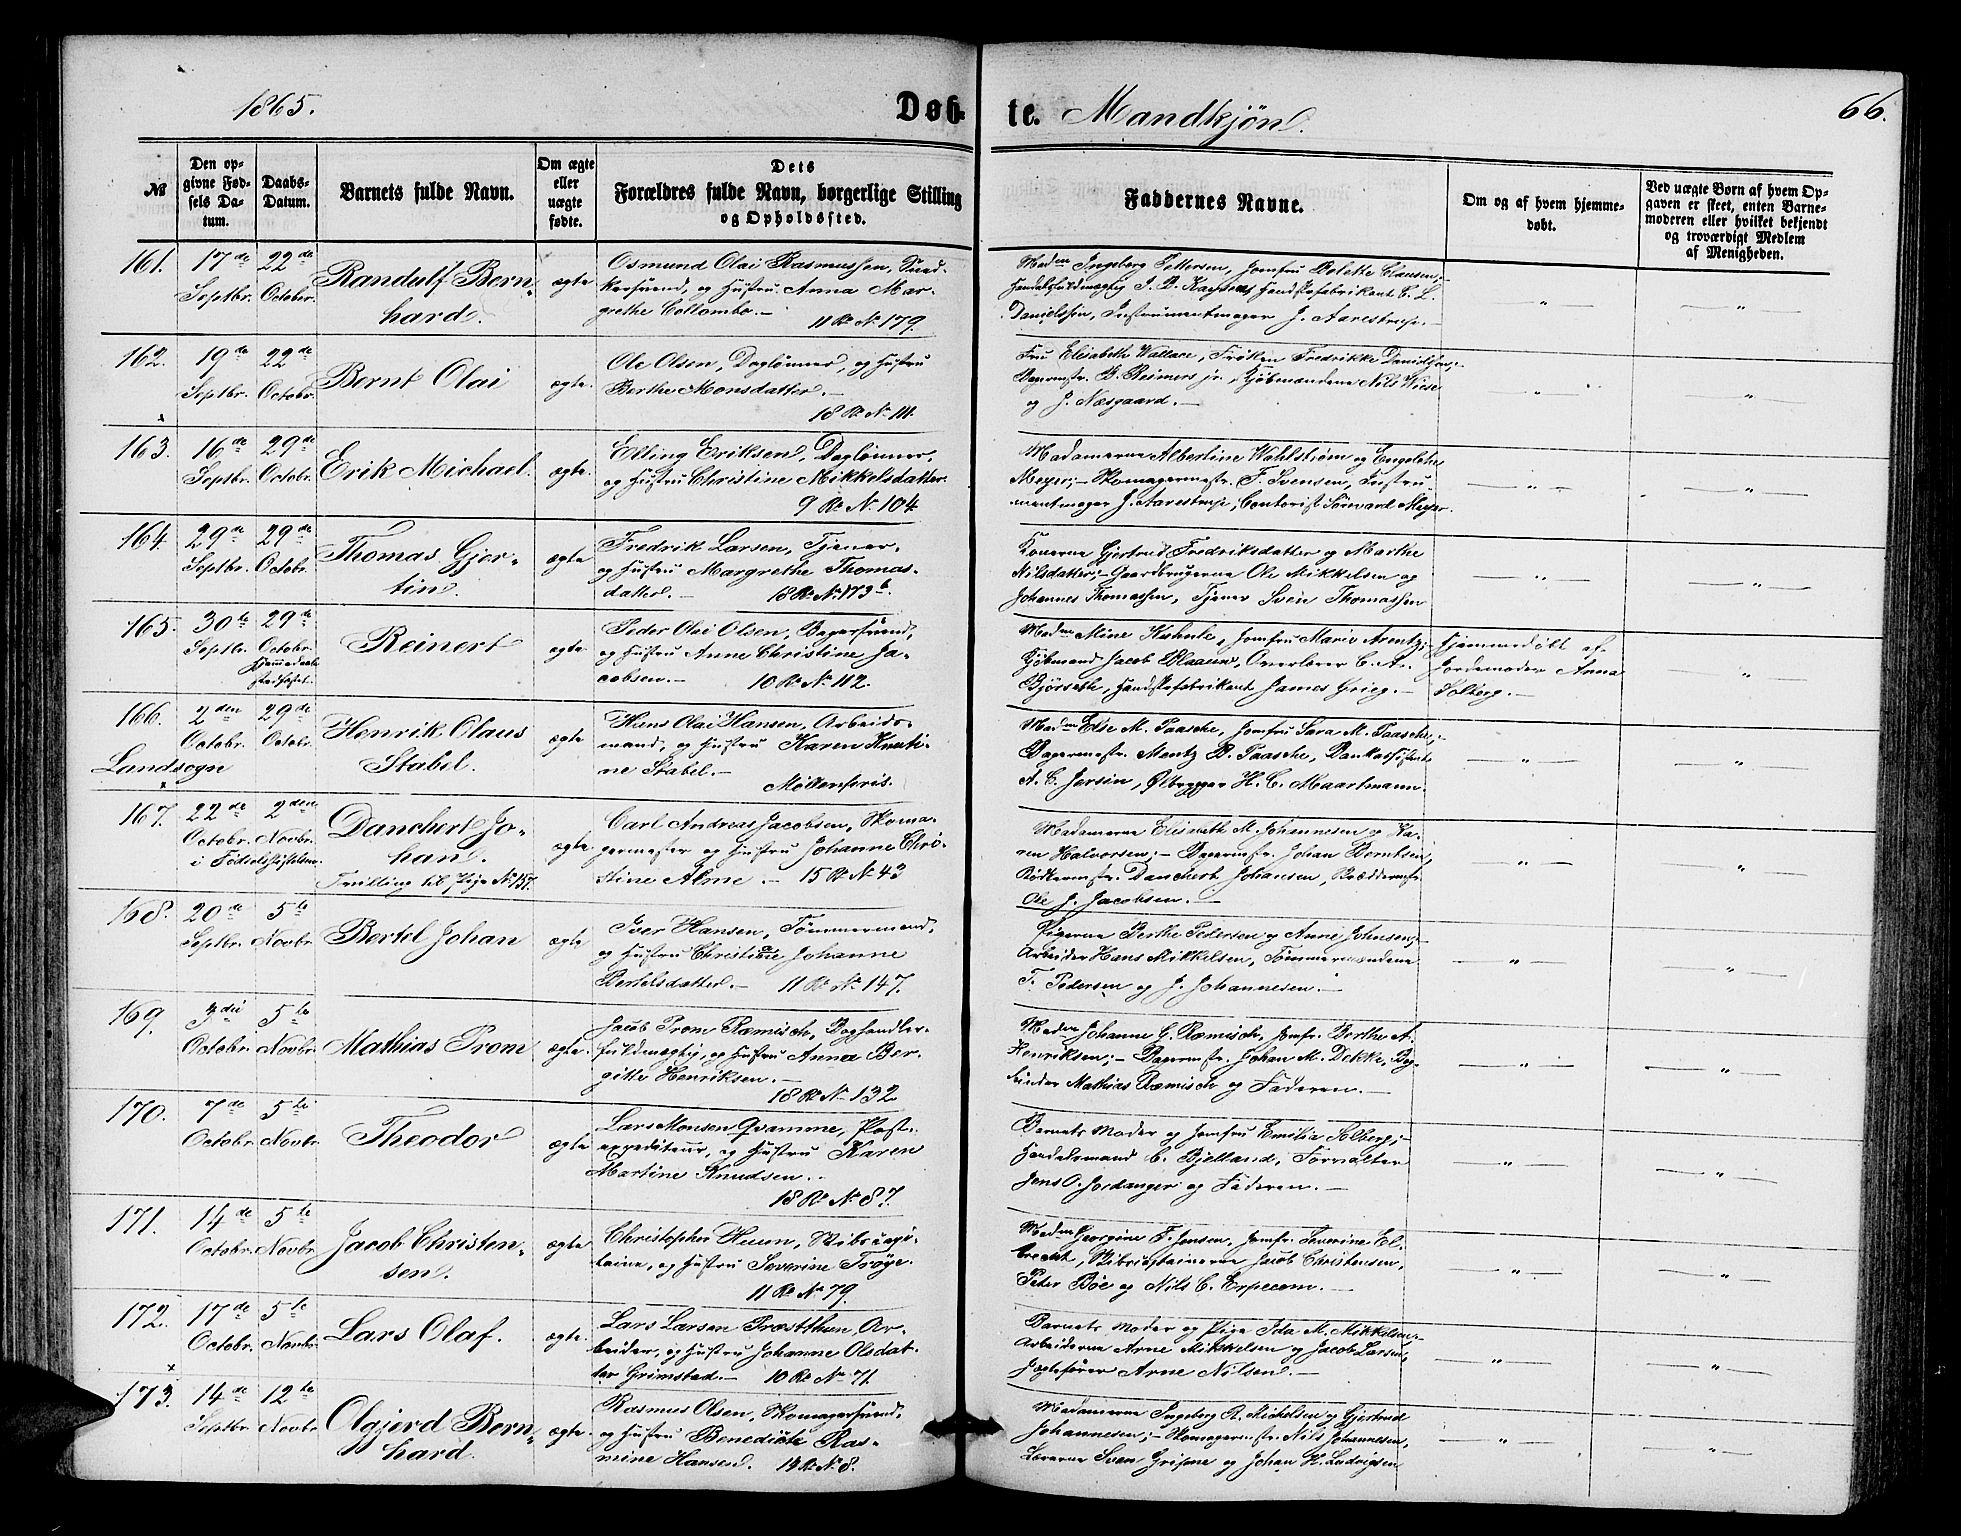 1865.
Døb- te. Mandkjøn.
66.
№
Den op-
givne Fød-
sels Da-
tum.
Daabs-
Datum.
Barnets fulde Navn.
Om ægte
eller
uægte
fødte.
Dets
Forældres fulde Navn, borgerlige Stilling
og Opholdssted.
Faddernes Navne.
Om og af hvem hjemme-
døbt.
Ved uægte Børn af hvem Op-
gaven er skeet, enten Barne-
moderen eller hvilket bekjendt
og troværdigt Medlem
af Menigheden.
161. 17de Septbr. 22de Octobr.
Randulf Bern-
hard.
ægte
Osmund Olai Rasmussen,
og Hustru Anna Mar-
grethe Collombo.—
11 Ro. N. 179.
Madm Ingeborg Pettersen, Jomfru Bolette Clausen;
Handelsfuldmægtig Handskefabrikant C. L.
Danielssen, Instrumentmager J. Aarestrup.—
162. 19de Septbr. 22de Octobr.
Bernt Olai
ægte.
Ole Olsen, Daglønner, og Hustru
Berthe Monsdatter.—
18 Ro. N. 111.
Fru Elisabeth Wallace, Frøken Fredrikke Danielssen;
Bagermstr. B. Reimers jr., Kjøbmændene Nils Wiese
og J. Næsgaard.—
163. 16de Septbr. 29de Octobr.
Erik Michael.
ægte.
Elling Eriksen, Daglønner,
og Hustru Christine Mikkelsdatter.
9 Ro. N. 104
Madamerne Albertine Wahlstrøm og Engelche
Meyer;— Skomagermstr. F. Svensen, Instru-
mentmager J. Aarestrup, Contorist Sørvard Meyer.
164. 29de Septbr. 29de Octobr.
Thomas Gjer-
tin.
ægte
Fredrik Larsen, Tjener,
og Hustru Margrethe Thomas-
datter.— 18 Ro. N. 173b.
Konerne Gjertrud Fredriksdatter og Marthe
Nilsdatter;— Gaardbrugerne Ole Mikkelsen og
Johannes Thomassen, Tjener Sven Thomassen
165. 30te Septbr. 29de Octobr.
Hjemmedaab
stadfæstet.
Reinert
ægte.
Peder Olai Olsen, Bagersvend,
og Hustru Anne Christine Ja-
cobsen.— 10 Ro. N. 112.
Madm Mine Kahnle, Jomfru Marie Arentz;
Kjøbmand Jacob Blaauw, Overlærer C. A.
Bjørseth, Handskefabrikant James Grieg.—
Hjemmedøbt af
Jordemoder Anna
Solberg.—
166. 2den Octobr. 29de Octobr.
Landsogn
Henrik Olaus
Stabel.
ægte
Hans Olai Hansen, Arbeids-
mand, og Hustru Karen Knuti-
ne Stabel.—
Møllenpriis.
Madm Else M. Paasche, Jomfru Sara M. Paasche;
Bagermstr. Mentz B. Paasche, Bankassistent
A. C. Jersin, Ølbrygger H. C. Maartmann.
167. 22de Octobr. 2den Novbr.
i Fødselsstiftelsen
Danchert Jo-
han.
Tvilling til Pige No. 157.
ægte
Carl Andreas Jacobsen, Skoma-
germester og Hustru Johanne Chri-
stine Alme.— 15 Ro. N. 43
Madamerne Elisabeth M. Johannesen og Ka-
ren Halvorsen;— Bagermstr. Johan Berntsen,
Bødkermstr. Danchert Johansen,
Ole J. Jacobsen.—
168. 20de Septbr. 5te Novbr.
Bertel Johan
ægte
Iver Hansen, Tømmermand,
og Hustru Christiane Johanne
Bertelsdatter.— 11 Ro. N. 147.
Pigerne Berthe Pedersen og Anne Johnsen;
Arbeider Hans Mikkelsen, Tømmermændene
T. Pedersen og J. Johannesen.—
169. 3die Octobr. 5te Novbr.
Mathias Prom
ægte.
Jacob Prom Ræmisch, Boghandler-
fuldmægtig, og Hustru Anna Ber-
gitte Henriksen.—
18 Ro. N. 132
Madm Johanne C. Ræmisch, Jomfr. Berthe A.
Henriksen;— Bagermstr. Johan M. Dekke, Bog-
binder Mathias Ræmisch og Faderen.—
170. 7de Octobr. 5te Novbr.
Theodor
ægte
Lars Monsen Qvamme, Post-
expediteur, og Hustru Karen
Martine Knudsen.
18 Ro. N. 87.
Barnets Moder og Jomfru Emilia Solberg;
Handelsmand C. Bjelland, Forvalter
Jens O. Jordanger og Faderen.—
171. 14de Octobr. 5te Novbr.
Jacob Christen-
sen.
ægte
Christopher Huun, Skibscapi-
taine, og Hustru Severine Trøye.
11 Ro. N. 79.
Madm Georgine F. Jensen, Jomfr. Severine El-
brecht, Skibscapitainerne Jacob Christensen,
Peter Bøe og Nils C. Erpecom.—
172. 17de Octobr. 5te Novbr.
Lars Olaf.
ægte.
Lars Larsen Præstthun, Ar-
beider, og Hustru Johanne Olsdat-
ter Grimstad.— 10 Ro. N. 71.
Barnets Moder og Pige Ida M. Mikkelsen;
Arbeiderne Arne Mikkelsen og Jacob Larsen,
Jægtefører Arne Nilsen.—
173. 14de Septbr. 12te Novbr.
Olgjerd Bern-
hard.
ægte.
Rasmus Olsen, Skomagersvend,
og Hustru Benedicte Ras-
mine Hansen. 14 Ro. N. 8.
Madamerne Ingeborg R. Michelsen og Gjertrud
Johannesen;— Skomagermstr. Nils Johannesen,
Lærerne Sven Gripne og Johan H. Ludvigsen